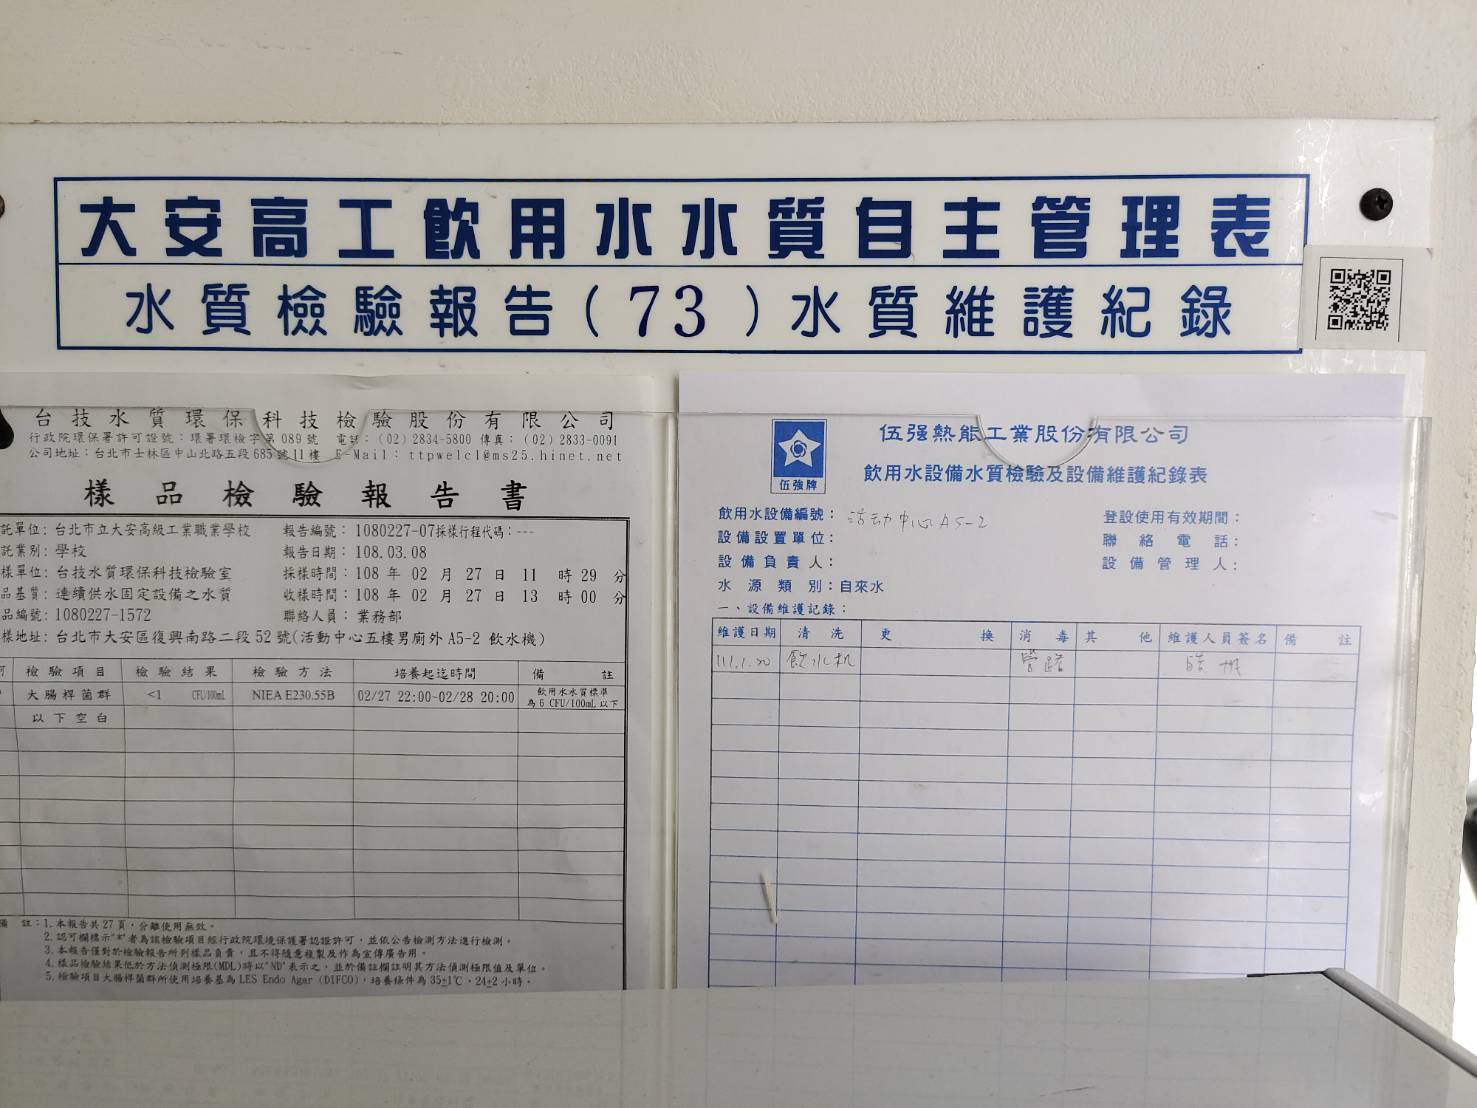 大安高工飲用水水質自主管理表
水質檢驗報告(73)水質維護紀錄
台技水質環保科技檢驗股份有限公司
行政院環保署許可證號：環署環檢字第089號 電話：(02) 2834-5800 傳真：(02) 2833-0091
公司地址：台北市士林區中山北路五段685號11樓 E-Mail：ttpwelcl@ms25.hinet.net
樣品檢驗報告書
託單位: 台北市立大安高級工業職業學校 報告編號：1080227-07採樣行程代碼：---
託業別: 學校 報告日期：108.03.08
樣單位: 台技水質環保科技檢驗室 採樣時間：108 年 02 月 27 日 11 時 29 分
品基質: 連續供水固定設備之水質 收樣時間：108 年 02 月 27 日 13 時 00 分
品編號: 1080227-1572 聯絡人員：業務部
樣地址: 台北市大安區復興南路二段 52 號(活動中心五樓男廁外 A5-2 飲水機)
檢驗項目 檢驗結果 檢驗方法 培養起迄時間 備註
大腸桿菌群 <1 CFU/100mL NIEA E230.55B 02/27 22:00-02/28 20:00 飲用水水質標準
為 6 CFU/100mL 以下
以下空白
備 註：1. 本報告共27頁，分離使用無效。
2. 認可欄標示"*"者為該檢驗項目經行政院環境保護署認證許可，並依公告檢測方法進行檢測。
3. 本報告僅對於檢驗報告所列樣品負責，且不得隨意複製及作為宣傳廣告用。
4. 樣品檢驗結果低於方法偵測極限(MDL)時以"ND"表示之，並於備註欄註明其方法偵測極限值及單位。
5. 檢驗項目大腸桿菌群所使用培養基為 LES Endo Agar (DIFCO)，培養條件為 35±1℃，24±2 小時。
伍強牌
伍强熱能工業股份有限公司
飲用水設備水質檢驗及設備維護紀錄表
飲用水設備編號：活动中心A5-2 登設使用有效期間：
設備設置單位： 聯絡電話：
設備負責人： 設備管理人：
水源類別：自來水
一、設備維護記錄：
維護日期 清洗 更換 消毒 其他 維護人員簽名 備註
111.1.20 飲水机 管路